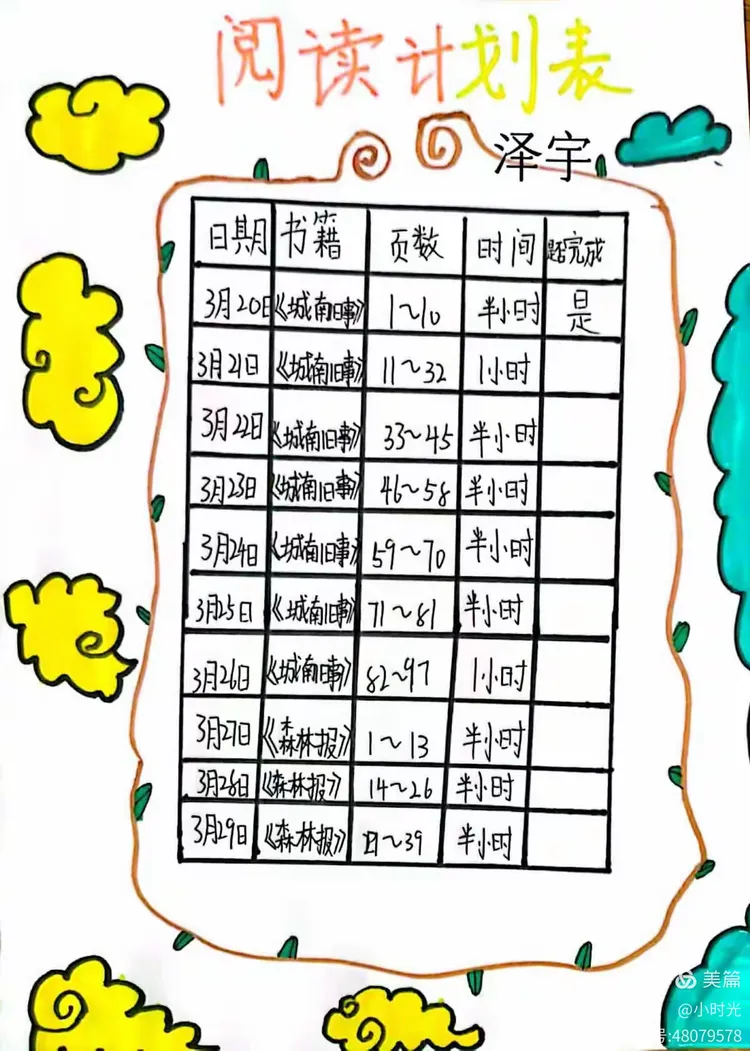 阅读计划表
泽宇
日期 书籍 页数 时间 是否完成
3月20日 《城南旧事》 1~10 半小时 是
3月21日 《城南旧事》 11~32 1小时
3月22日 《城南旧事》 33~45 半小时
3月23日 《城南旧事》 46~58 半小时
3月24日 《城南旧事》 59~70 半小时
3月25日 《城南旧事》 71~81 半小时
3月26日 《城南旧事》 82~97 1小时
3月27日 《森林报》 1~13 半小时
3月28日 《森林报》 14~26 半小时
3月29日 《森林报》 ~39 半小时
美篇
@小时光
号:48079578